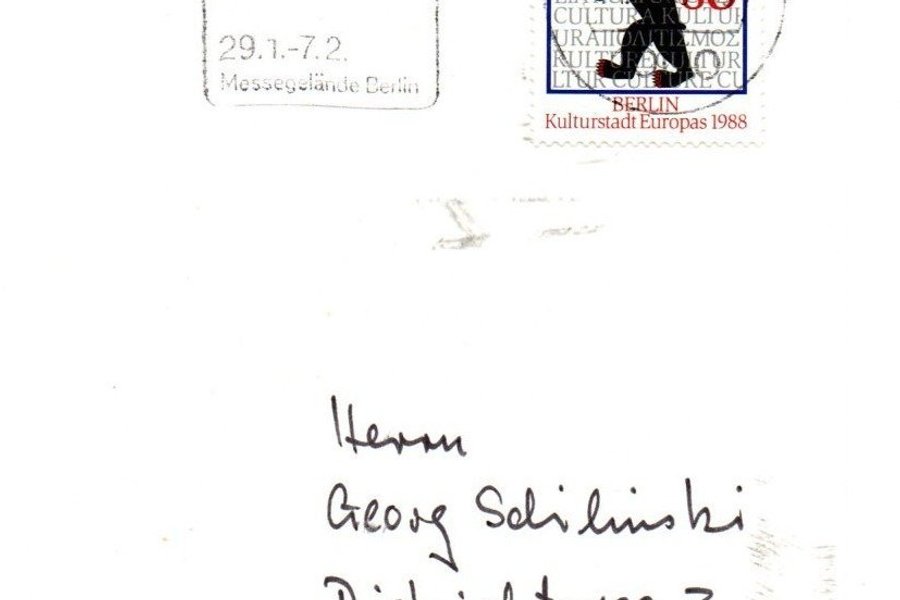 29.1.-7.2.
Messegelände Berlin
CULTURA KULTUR
URAΠΟΛΙΤΙΣΜΟΣ
LTUR CULTURE CU
BERLIN
Kulturstadt Europas 1988
Herrn
Georg Schilinski